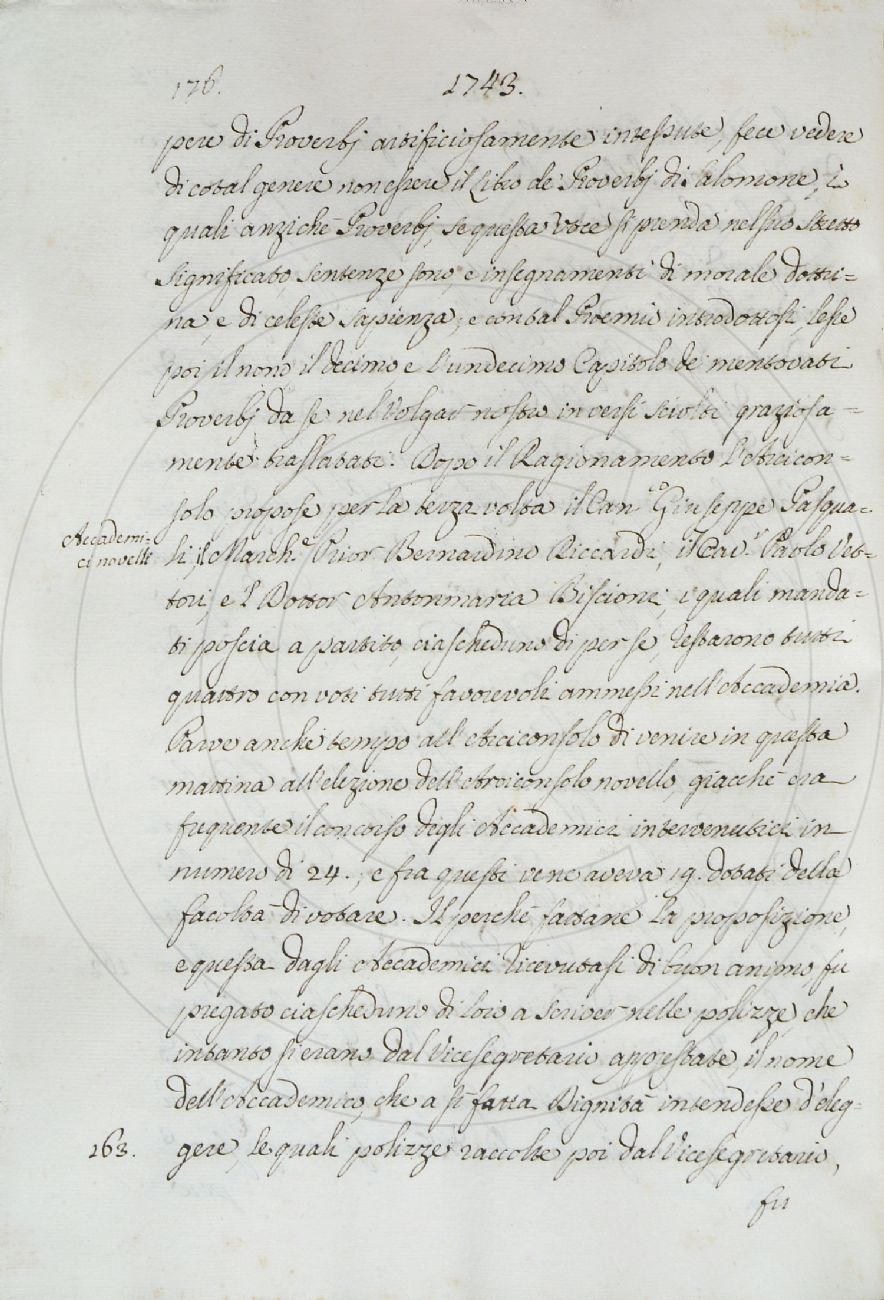 176. 1743.
pere di Proverbj artificiosamente intessute, fece vedere
di cotal genere non essere il Libro de' Proverbj di Salomone, i
quali anziché Proverbj, se questa voce si prenda nel suo stretto
significato, sentenze sono, e insegnamenti di morale dottri=
na, e di celeste sapienza; e con tal Proemio introdottosi, lesse
poi il nono, il decimo e l'undecimo Capitolo de' mentovati
Proverbj da se nel Volgar nostro in versi sciolti graziosa=
mente traslatati. Dopo il Ragionamento l'Arcicon=
solo propose per la terza volta il Can.co Giuseppe Pasqua=
Accademi=
ci novelli
li, il March.e Prior Bernardino Riccardi, il Cav.r Paolo Vet=
tori, e 'l Dottor Antonmaria Biscioni, i quali manda=
ti poscia a partito, ciascheduno di per se, restarono tutti
quattro con voti tutti favorevoli ammessi nell'Accademia.
Parve anche tempo all'Arciconsolo di venire in questa
mattina all'elezione dell'Arciconsolo novello, giacché era
frequente il concorso degli Accademici intervenutici in
numero di 24., e fra questi ve ne aveva 19. dotati della
facoltà di votare. Il perché fattane la proposizione,
e questa dagli Accademici ricevutasi di buon animo, fu
pregato ciascheduno di loro a scriver nelle polizze, che
intanto si erano dal Vicesegretario apprestate, il nome
dell'Accademico, che a sì fatta Dignità intendesse d'eleg=
263. gere, le quali polizze raccolte poi dal Vicesegretario,
fu